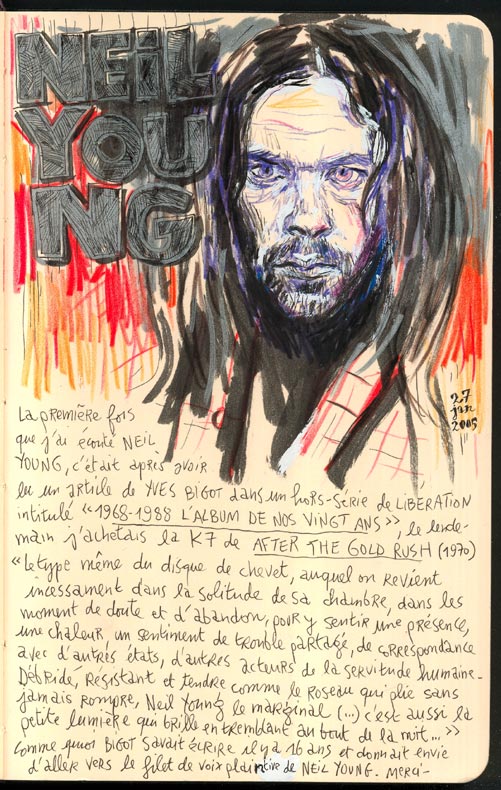 NEIL
YOU
NG
27
jan
2005
La première fois
que j'ai écouté NEIL
YOUNG, c'était après avoir
lu un article de YVES BIGOT dans un hors-série de LIBÉRATION
intitulé « 1968-1988 L'ALBUM DE NOS VINGT ANS », le lende-
main j'achetais la K7 de AFTER THE GOLD RUSH (1970)
« Le type même du disque de chevet, auquel on revient
incessament dans la solitude de sa chambre, dans les
moment de doute et d'abandon, pour y sentir une présence,
une chaleur, un sentiment de trouble partagé, de correspondance
avec d'autres états, d'autres acteurs de la servitude humaine.
Débridé, résistant et tendre comme le roseau qui plie sans
jamais rompre, Neil Young le marginal (...) c'est aussi la
petite lumière qui brille en tremblant au bout de la nuit... »
Comme quoi BIGOT savait écrire il y a 16 ans et donnait envie
d'aller vers le filet de voix plaintive de NEIL YOUNG. Merci-